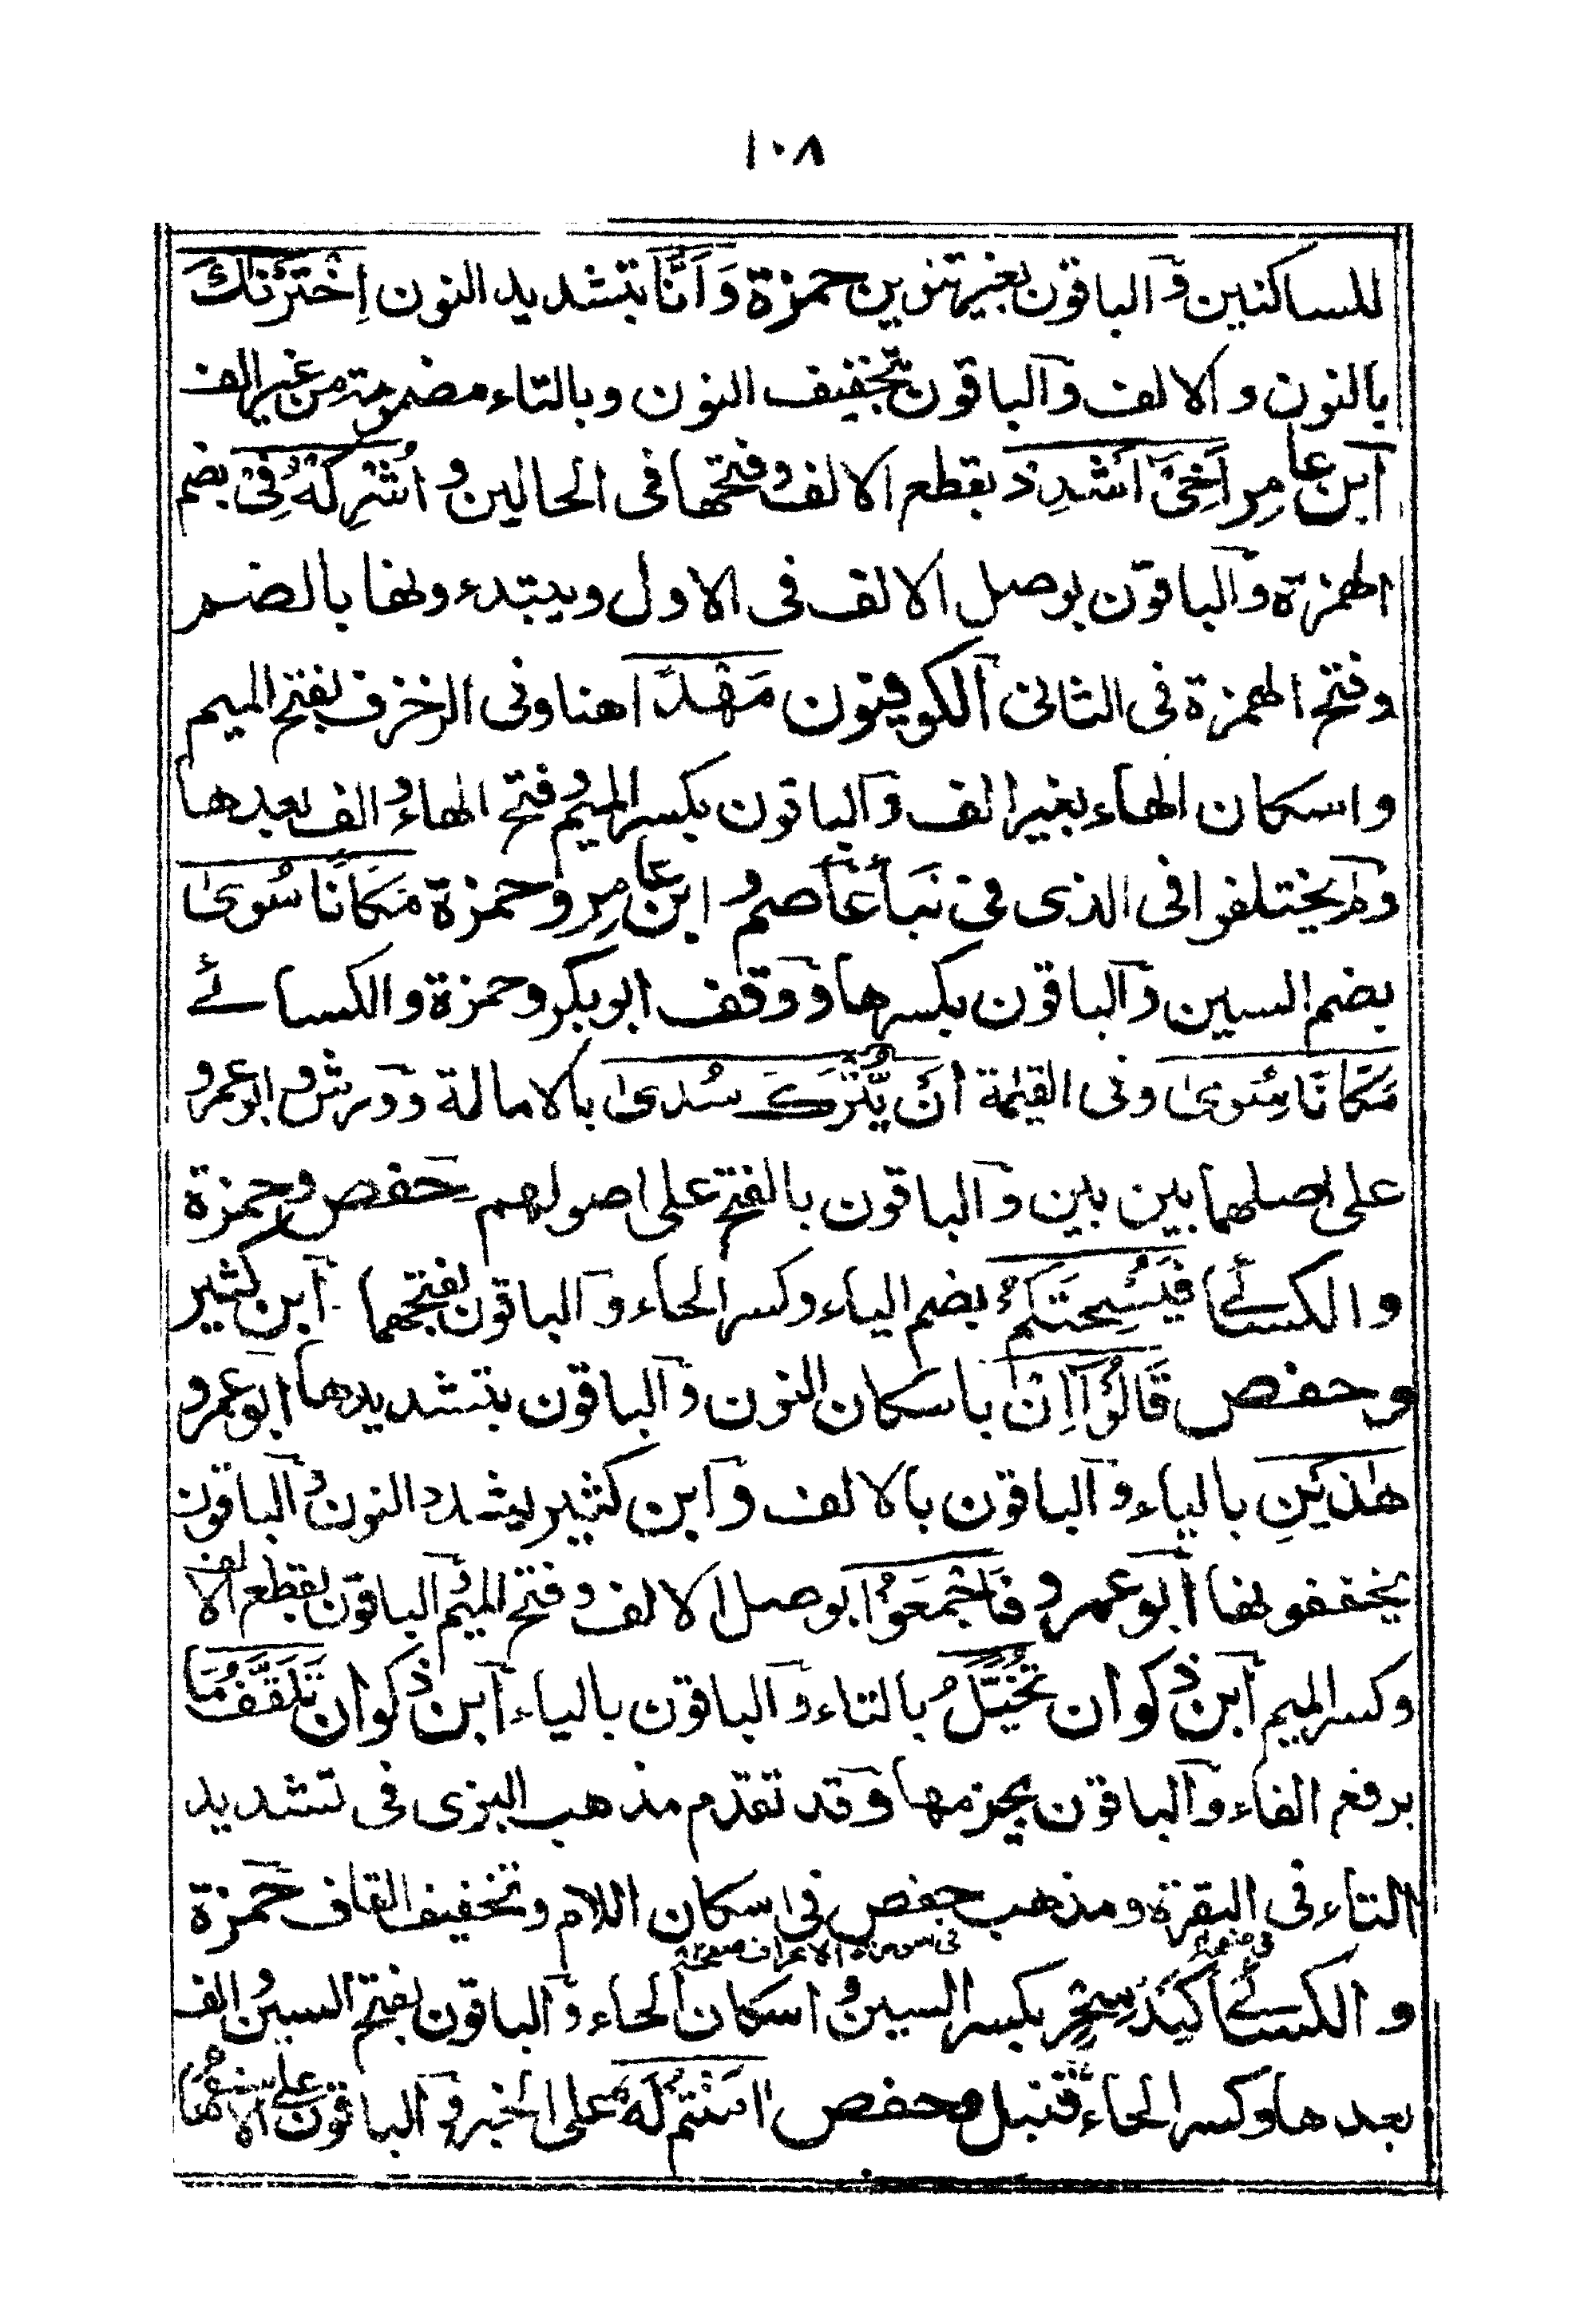 ١٠٨
للساكنين والباقون بغير تنوين حمزة وَاَنَّا بتشديد النون اِخْتَرْنٰكَ
بالنون والالف والباقون بتخفيف النون وبالتاء مضمومة من غير الف
ابن عامر اَخِىْ اَشْدِدْ بقطع الالف وفتحها فى الحالين و اُشْرِكْهُ فِىْ بضم
الهمزة والباقون بوصل الالف فى الاول ويبتدءونها بالضم
وفتح الهمزة فى الثانى الكوفيون مَهْدًا هنا وفى الزخرف بفتح الميم
واسكان الهاء بغير الف والباقون بكسر الميم وفتح الهاء والف بعدها
ولم يختلفوا فى الذى فى نَبَأ عاصم و ابن عامر وحمزة مَكَانًا سُوىً
بضم السين والباقون بكسرها ووقف ابو بكر وحمزة والكسائے
مَكَانًا سِوىً وفى القيٰمة اَنْ يُّتْرَكَ سُدىً بالامالة وورش وابو عمرو
على اصلهما بين بين والباقون بالفتح على اصولهم حفص وحمزة
والكسائے فَيُسْحِتَكُمْ بضم الياء وكسر الحاء والباقون بفتحهما ابن كثير
وحفص قَالُوْٓا اِنْ باسكان النون والباقون بتشديدها ابو عمرو
هٰذَيْنِ بالياء والباقون بالالف وابن كثير يشدد النون والباقون
يخففونها ابو عمرو فَاجْمَعُوْا بوصل الالف وفتح الميم والباقون بقطع الالف
وكسر الميم ابن ذكوان تُخَيَّلُ بالتاء والباقون بالياء ابن ذكوان تَلَقَّفُ مَا
برفع الفاء والباقون بجزمها وقد تقدم مذهب البزى فى تشديد
التاء فى البقرة ومذهب حفص فى اسكان اللام وتخفيف القاف حمزة
فى سورة الاعراف
والكسائے كَيْدُ سِحْرٍ بكسر السين واسكان الحاء والباقون بفتح السين والف
بعدها وكسر الحاء قنبل وحفص اٰمَنْتُمْ لَهٗ على الخبر والباقون على الاستفهام